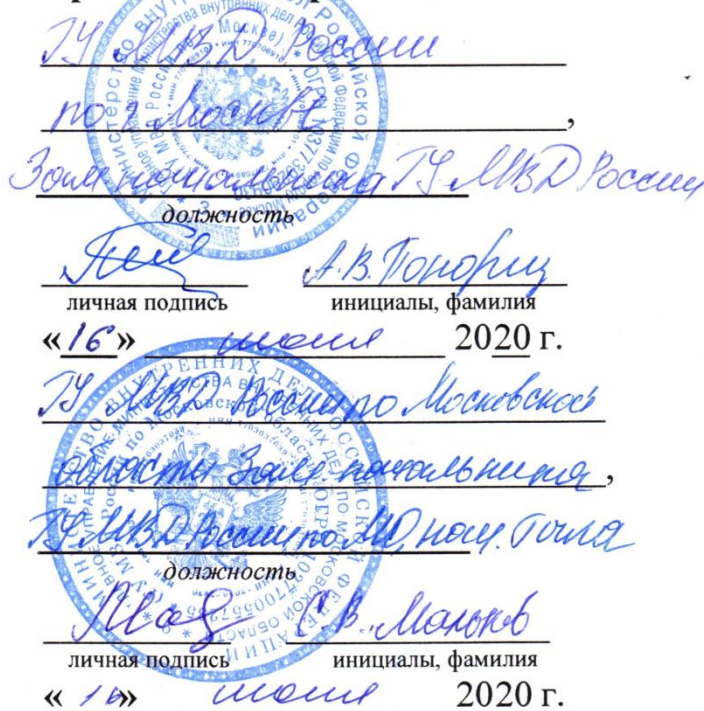 ГУ МВД России
по г. Москве,
Зам. начальника ГУ МВД России
должность
А.В. Понорец
личная подпись инициалы, фамилия
«16» июля 2020 г.
ГУ МВД России по Московской
области Зам. начальника,
ГУ МВД России по МО, нач. тыла
должность
С.В. Мальков
личная подпись инициалы, фамилия
«16» июля 2020 г.